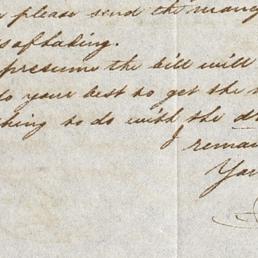 please send the
of lading.
presume the bill will
do your best to get the
to do with the
I remai
You